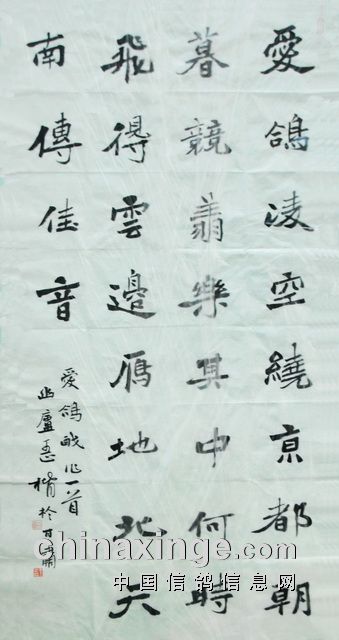 愛鴿凌空繞京都朝
暮競翔樂其中何時
飛得雲邊鴈地北天
南傳佳音
愛鴿戲作一首
廬 於
chinaxinge.com
中国信鸽信息网